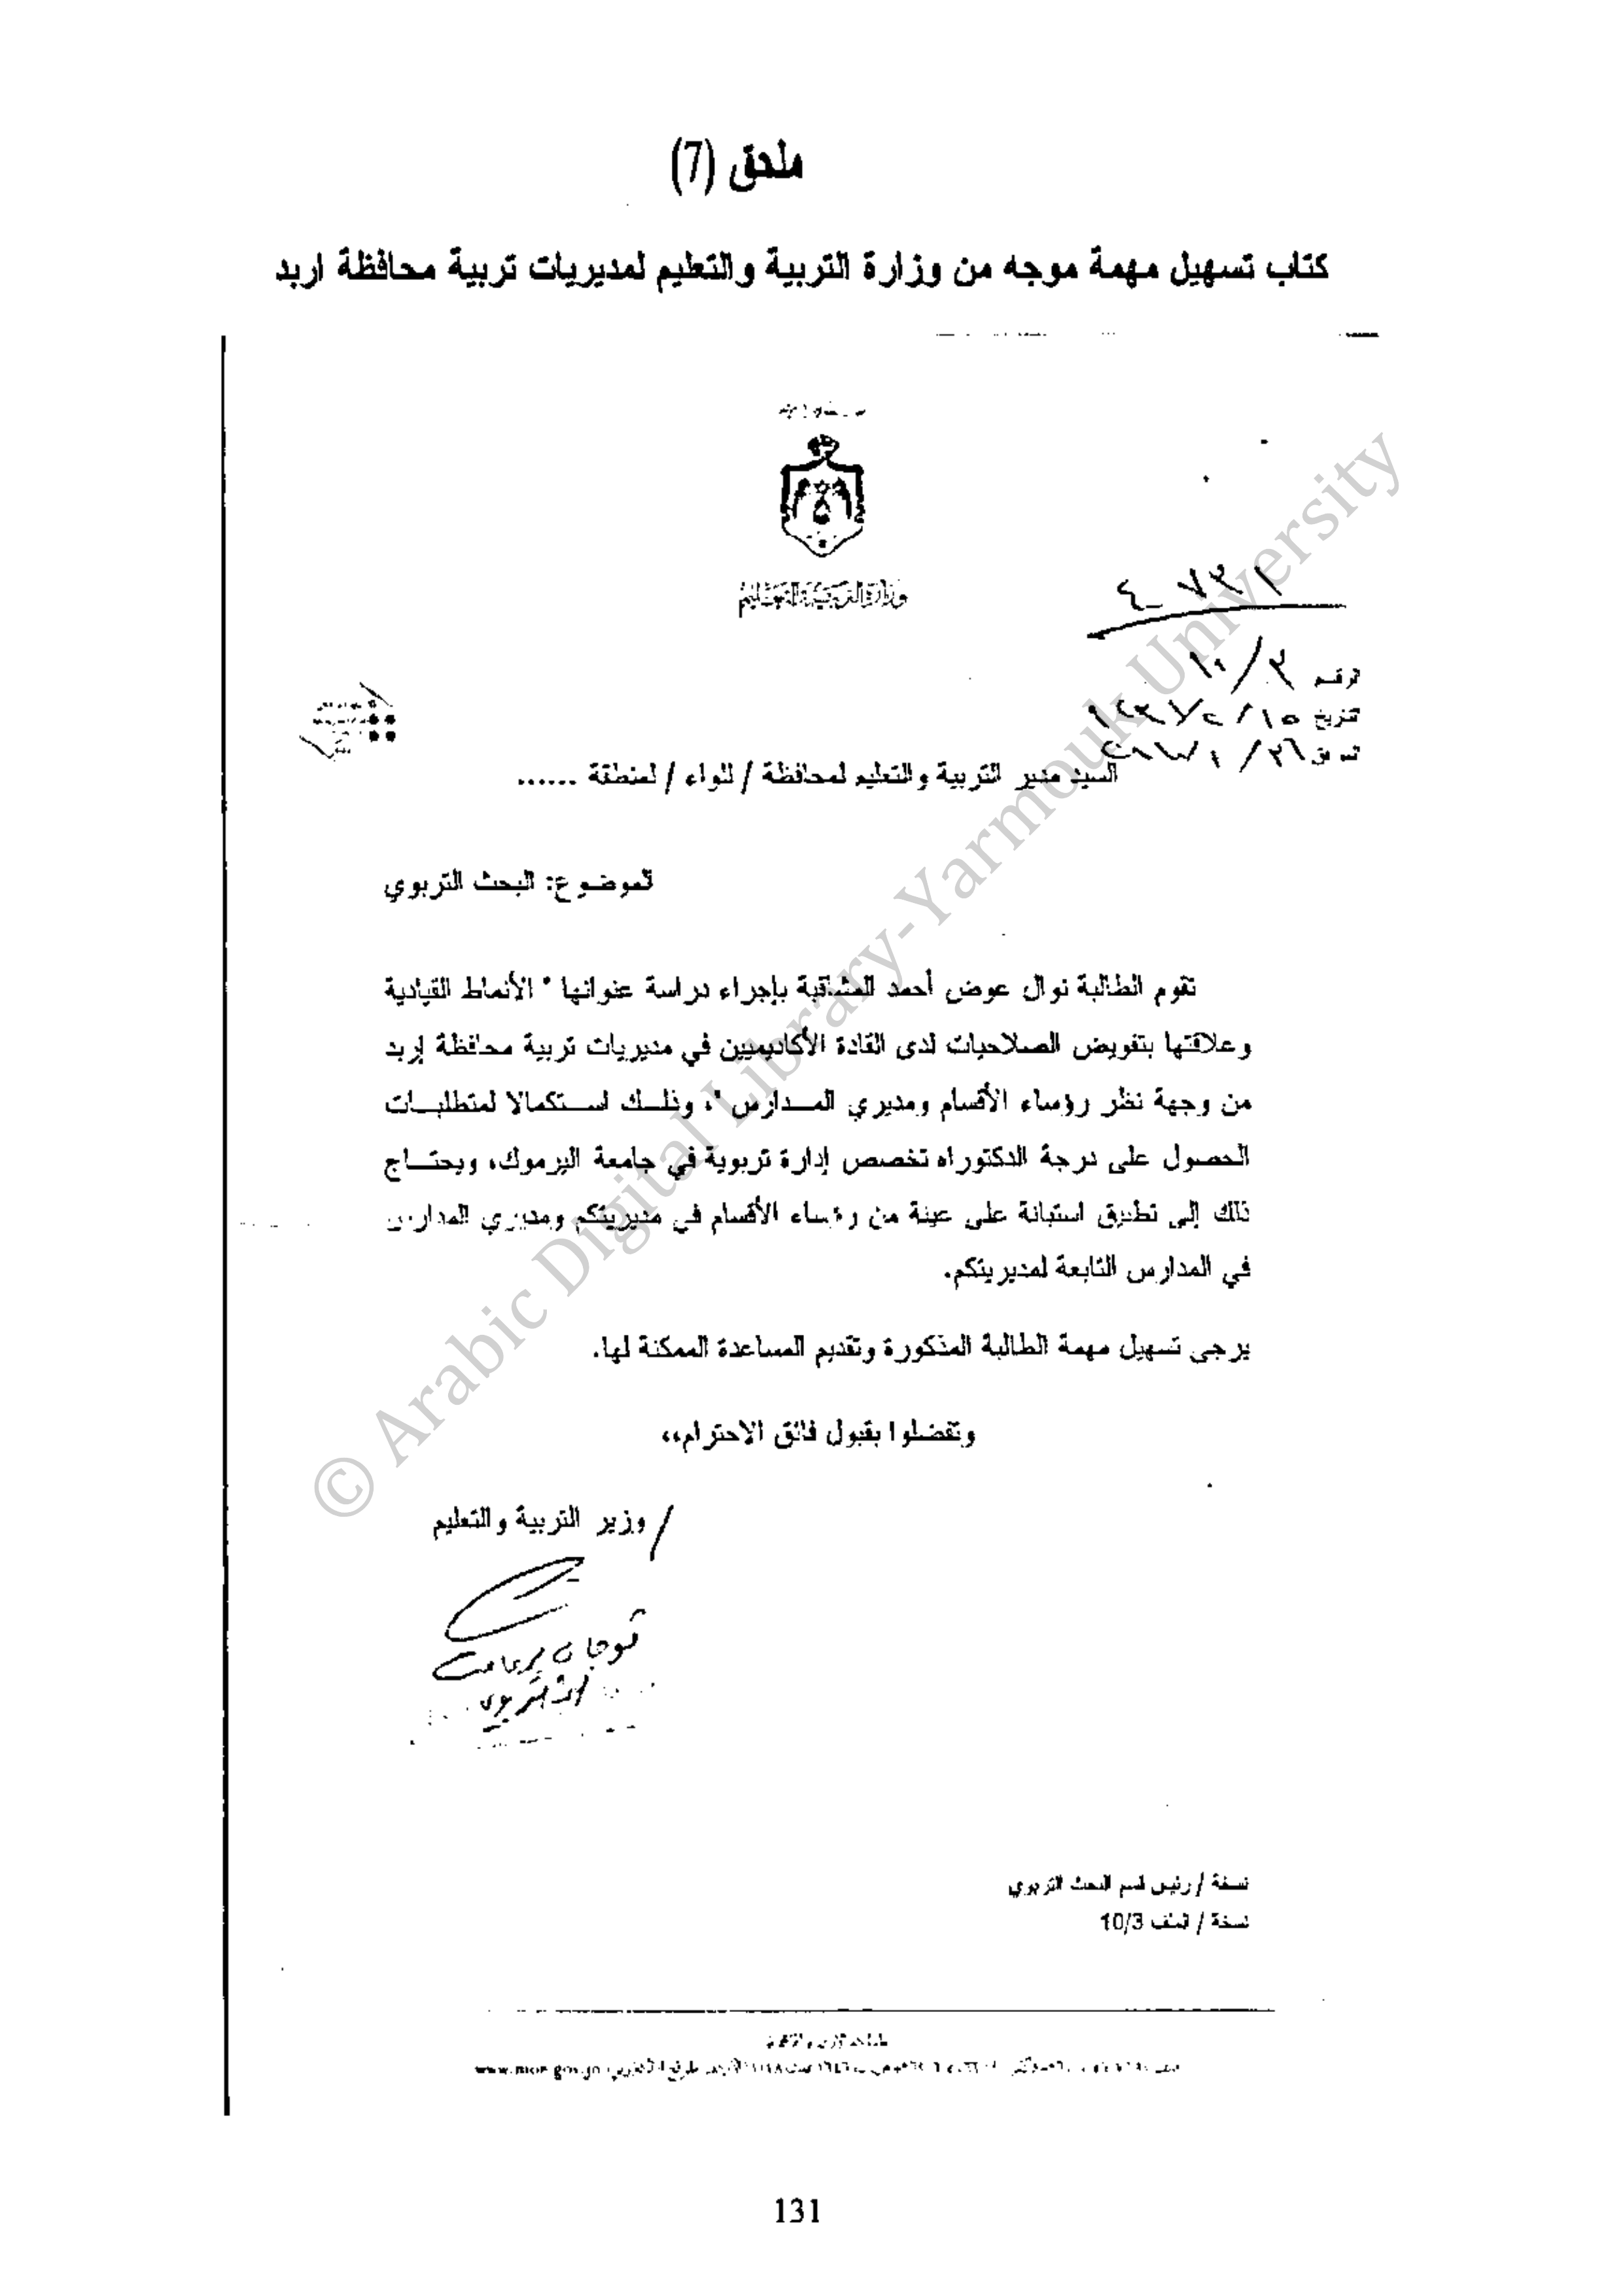 ملحق (7)
كتاب تسهيل مهمة موجه من وزارة التربية والتعليم لمديريات تربية محافظة اربد
وزارة التربية والتعليم
الرقم ١٠/٣
التاريخ
الموافق
السيد مدير التربية والتعليم لمحافظة / للواء / لمنطقة ......
الموضوع: البحث التربوي
تقوم الطالبة نوال عوض أحمد المشاقبة بإجراء دراسة عنوانها " الأنماط القيادية
وعلاقتها بتفويض الصلاحيات لدى القادة الأكاديميين في مديريات تربية محافظة إربد
من وجهة نظر رؤساء الأقسام ومديري المــدارس "، وذلــك اســتكمالا لمتطلبــات
الحصول على درجة الدكتوراه تخصص إدارة تربوية في جامعة اليرموك، ويحتــاج
ذلك إلى تطبيق استبانة على عينة من رؤساء الأقسام في مديريتكم ومديري المدارس
في المدارس التابعة لمديريتكم.
يرجى تسهيل مهمة الطالبة المذكورة وتقديم المساعدة الممكنة لها.
وتفضلوا بقبول فائق الاحترام،،
/ وزير التربية والتعليم
نسخة / رئيس قسم البحث التربوي
نسخة / الملف 10/3
131
© Arabic Digital Library-Yarmouk University